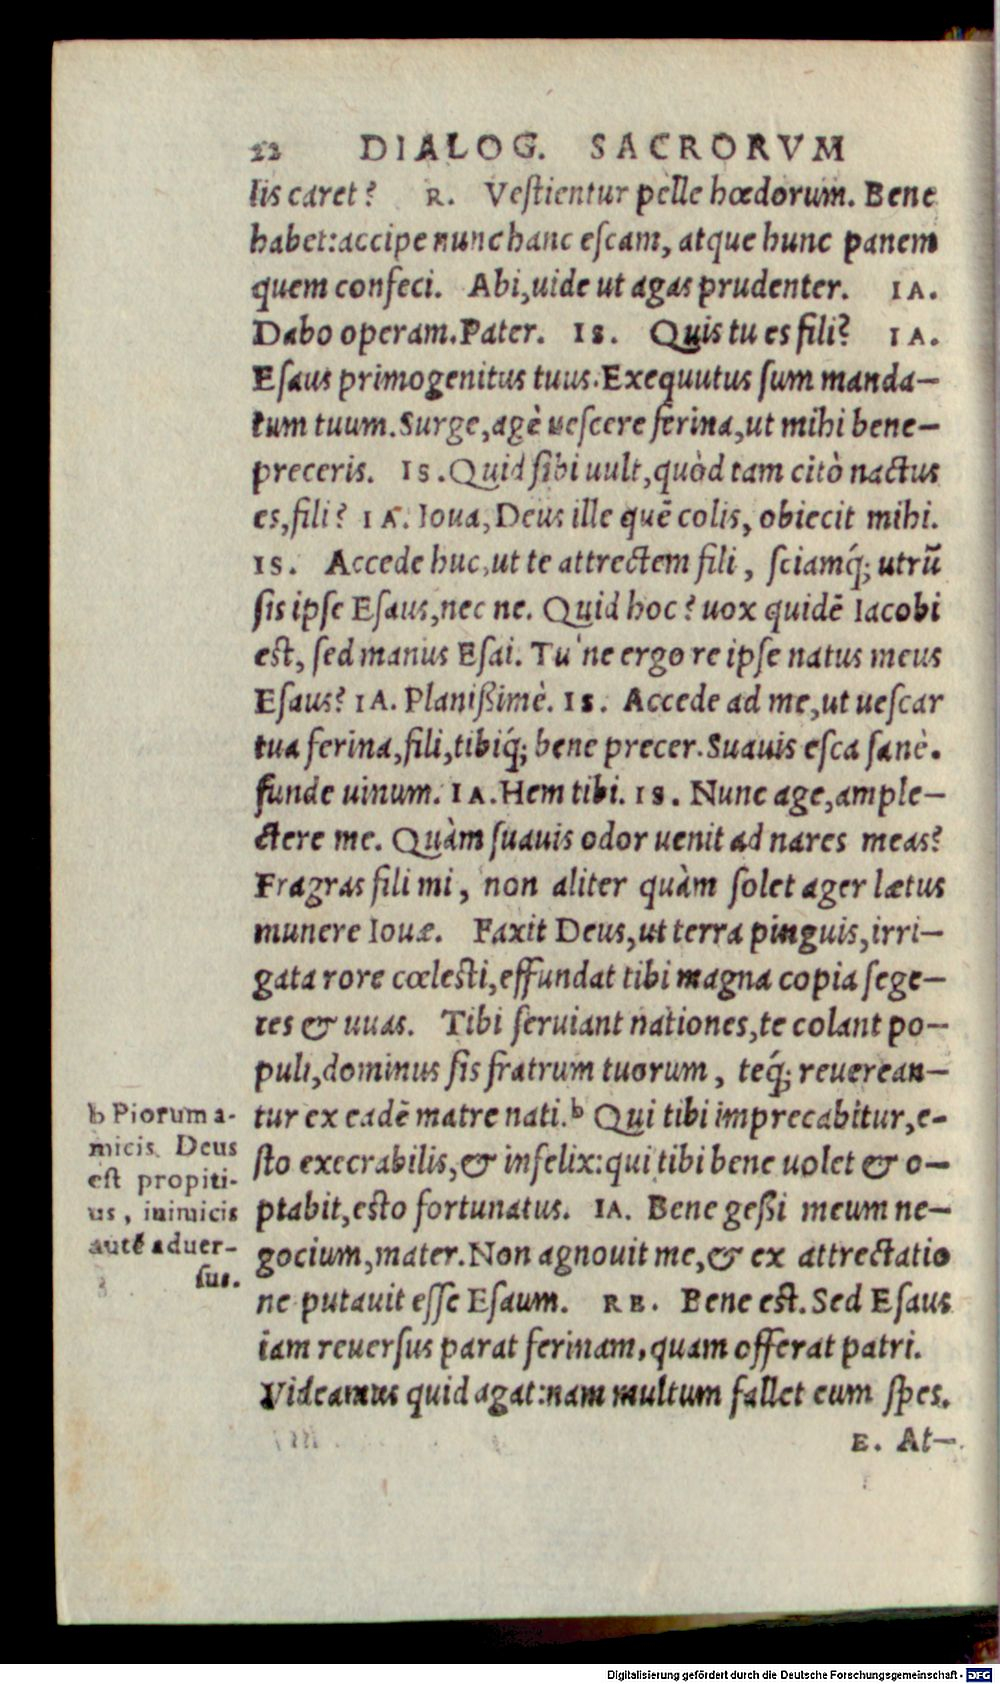 22 DIALOG. SACRORVM
lis caret? R. Vestientur pelle hœdorum. Bene
habet: accipe nunc hanc escam, atque hunc panem
quem confeci. Abi, uide ut agas prudenter. IA.
Dabo operam. Pater. IS. Quis tu es fili? IA.
Esaus primogenitus tuus. Exequutus sum manda-
tum tuum. Surge, agè uescere ferina, ut mihi bene-
preceris. IS. Quid sibi uult, quòd tam citò nactus
es, fili? IA. Ioua, Deus ille quē colis, obiecit mihi.
IS. Accede huc, ut te attrectem fili, sciamq́; utrū
sis ipse Esaus, nec ne. Quid hoc? uox quidē Iacobi
est, sed manus Esai. Tu ne ergo re ipse natus meus
Esaus? IA. Planißimè. IS. Accede ad me, ut uescar
tua ferina, fili, tibiq́; bene precer. Suauis esca sanè.
funde uinum. IA. Hem tibi. IS. Nunc age, ample-
ctere me. Quàm suauis odor uenit ad nares meas?
Fragras fili mi, non aliter quàm solet ager lætus
munere Iouæ. Faxit Deus, ut terra pinguis, irri-
gata rore cœlesti, effundat tibi magna copia sege-
tes & uuas. Tibi seruiant nationes, te colant po-
puli, dominus sis fratrum tuorum, teq́; reuerean-
tur ex eadē matre nati. b Qui tibi imprecabitur, e-
sto execrabilis, & infelix: qui tibi bene uolet & o-
ptabit, esto fortunatus. IA. Bene geßi meum ne-
gocium, mater. Non agnouit me, & ex attrectatio
ne putauit esse Esaum. RE. Bene est. Sed Esaus
iam reuersus parat ferinam, quam offerat patri.
Videamus quid agat: nam multum fallet eum spes.
E. At-
b Piorum a-
micis Deus
est propiti-
us, inimicis
autē aduer-
sus.
Digitalisierung gefördert durch die Deutsche Forschungsgemeinschaft - DFG